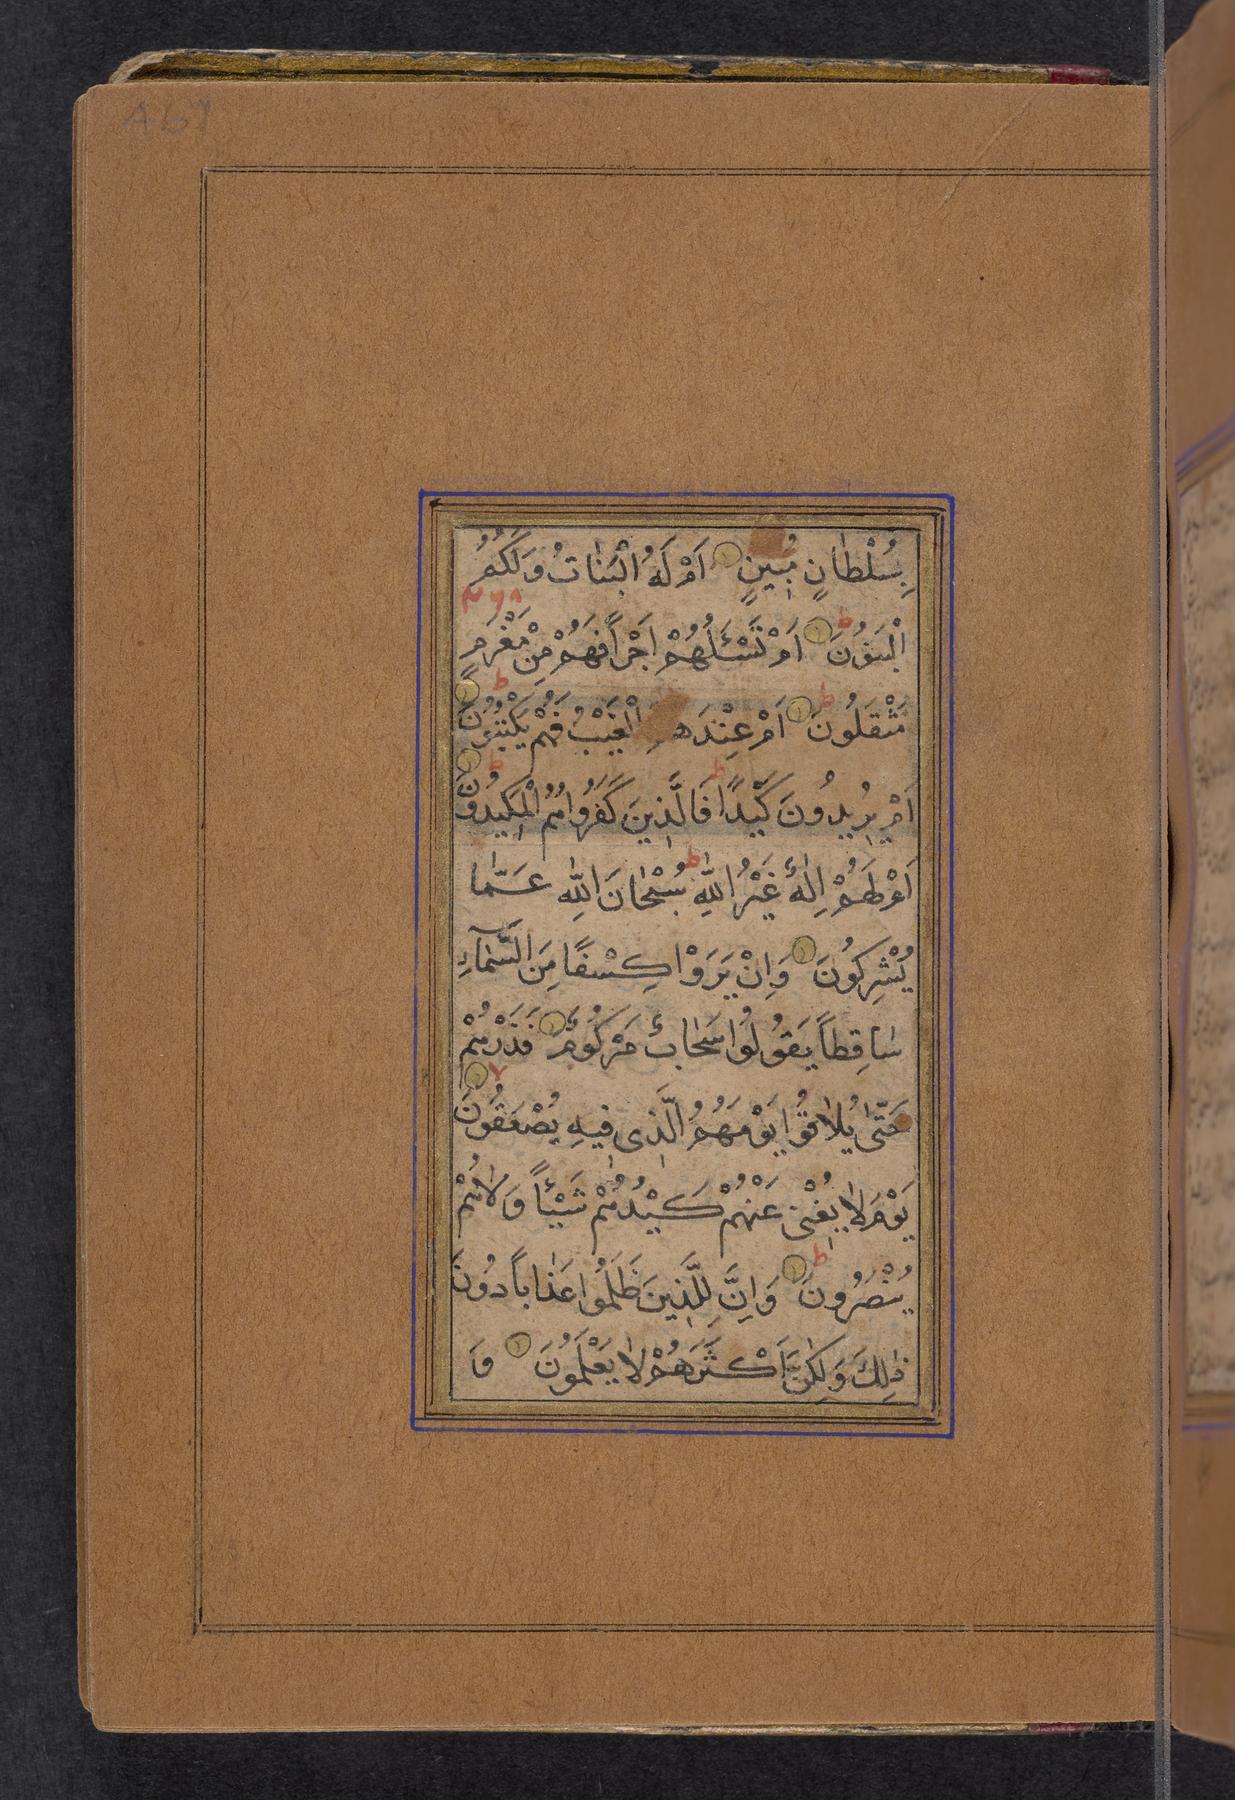 بِسُلْطَانٍ مُبِينٍ اَمْ لَهُ الْبَنَاتُ وَلَكُمُ
الْبَنُونَ اَمْ تَسْـَٔلُهُمْ اَجْراً فَهُمْ مِنْ مَغْرَمٍ
مُثْقَلُونَ اَمْ عِنْدَهُمُ الْغَيْبُ فَهُمْ يَكْتُبُونَ
اَمْ يُرِيدُونَ كَيْدًا فَالَّذِينَ كَفَرُوا هُمُ الْمَكِيدُونَ
اَمْ لَهُمْ اِلٰهٌ غَيْرُ اللّٰهِ سُبْحَانَ اللّٰهِ عَمَّا
يُشْرِكُونَ وَاِنْ يَرَوْا كِسْفًا مِنَ السَّمَآءِ
سَاقِطاً يَقُولُوا سَحَابٌ مَرْكُومٌ فَذَرْهُمْ
حَتّٰى يُلَاقُوا يَوْمَهُمُ الَّذِى فِيهِ يُصْعَقُونَ
يَوْمَ لَا يُغْنِى عَنْهُمْ كَيْدُهُمْ شَيْـًٔا وَلَا هُمْ
يُنْصَرُونَ وَاِنَّ لِلَّذِينَ ظَلَمُوا عَذَاباً دُونَ
ذٰلِكَ وَلٰكِنَّ اَكْثَرَهُمْ لَا يَعْلَمُونَ وَ